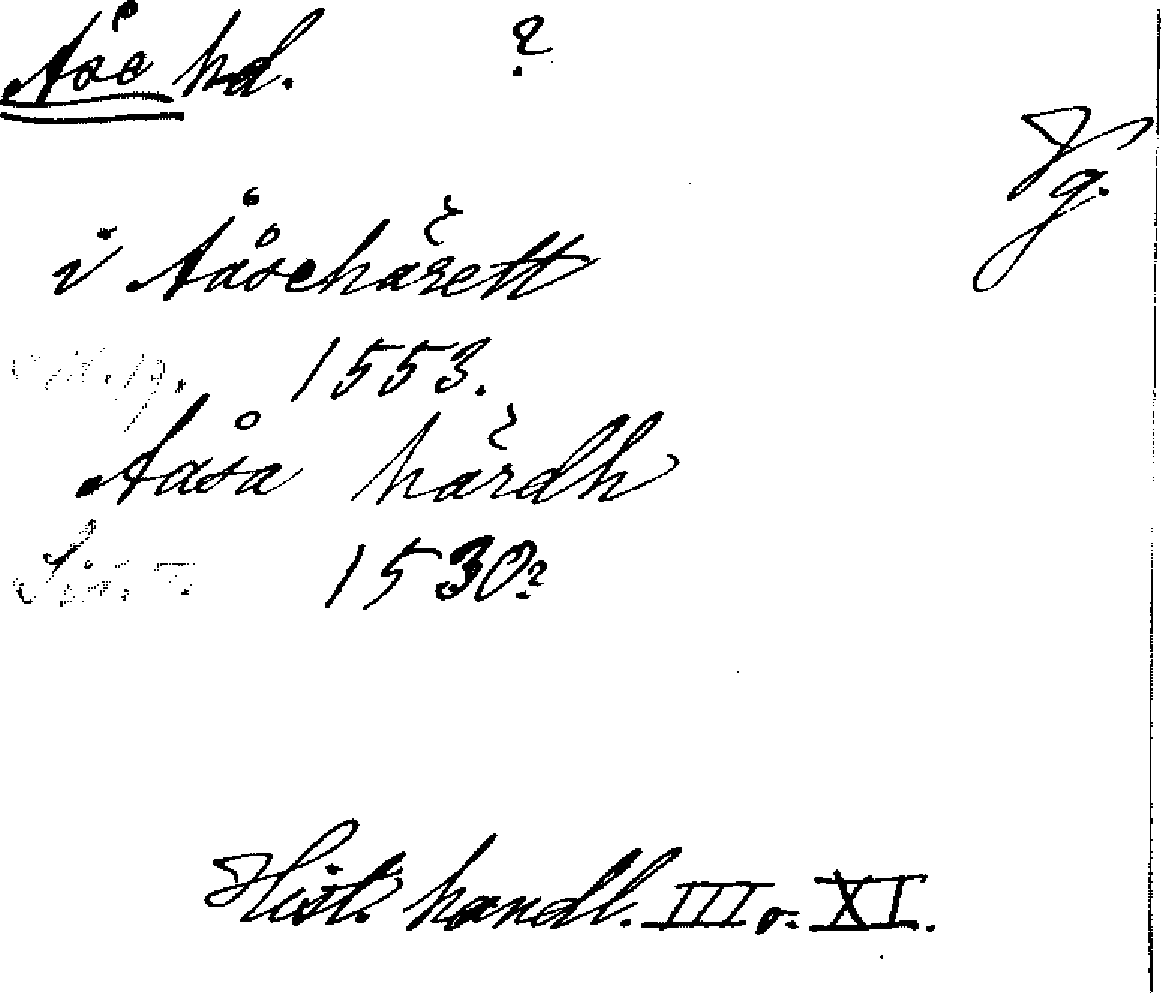 Åse hd. ?
Vg.
i Ååsehäřett
1553.
Aåsa häřdh
1530?
Hist. handl. III o. XI.